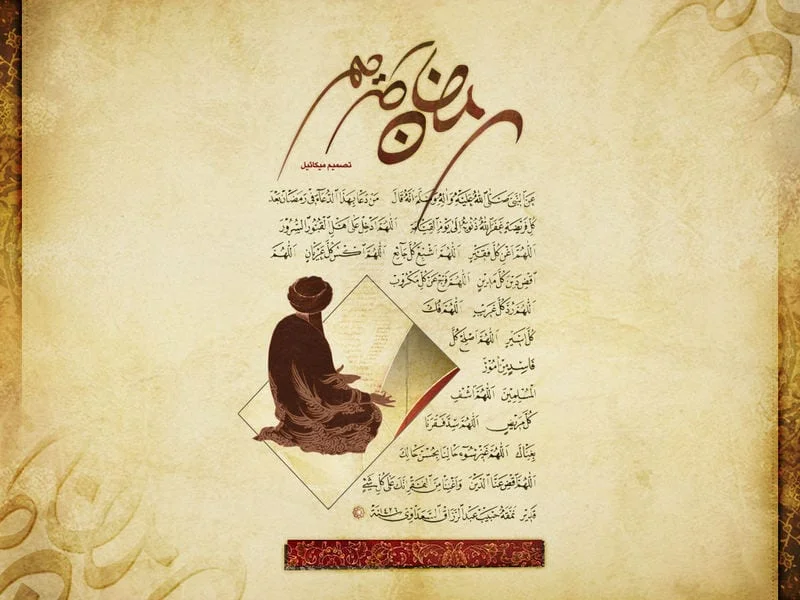 رمضان كريم
تصميم ميكائيل
عن النبي صلى الله عليه وآله وسلم أنه قال من دعا بهذا الدعاء في رمضان بعد
كل فريضة غفر الله ذنوبه إلى يوم القيامة اللهم ادخل على اهل القبور السرور
اللهم اغن كل فقير اللهم اشبع كل جائع اللهم اكس كل عريان اللهم
اقض دين كل مدين اللهم فرج عن كل مكروب
اللهم رد كل غريب اللهم فك
كل اسير اللهم اصلح كل
فاسد من امور
المسلمين اللهم اشف
كل مريض اللهم سد فقرنا
بغناك اللهم غير سوء حالنا بحسن حالك
اللهم اقض عنا الدين واغننا من الفقر انك على كل شيء
قدير نمقه حبيب عبد الرزاق السعداوي سنة